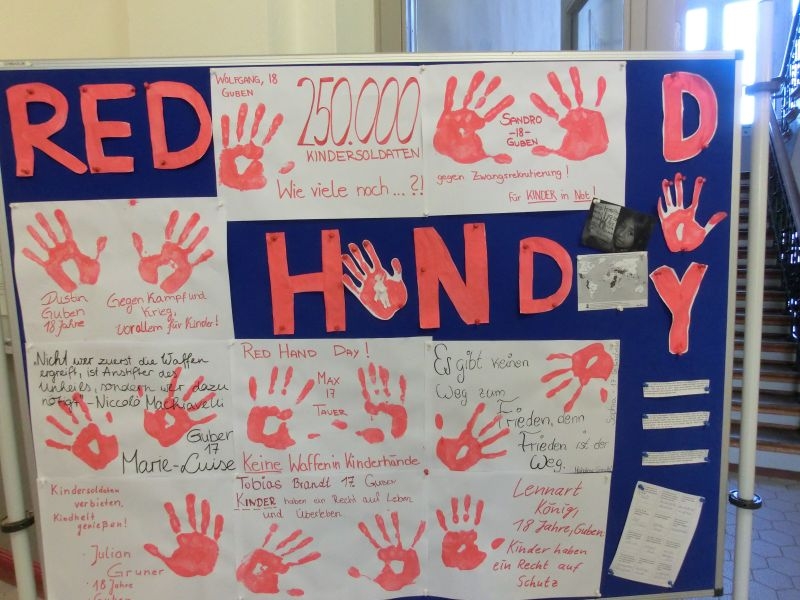 RED
HAND
DAY
WOLFGANG, 18
GUBEN
250.000
KINDERSOLDATEN
Wie viele noch ... ?!
SANDRO
-18-
GUBEN
gegen Zwangsrekrutierung!
Für KINDER in Not!
Dustin
Guben
18 Jahre
Gegen Kampf und
Krieg,
vorallem für Kinder!
„Nicht wer zuerst die Waffen
ergreift, ist Anstifter des
Unheils, sondern wer dazu
nötigt" - Niccoló Machiavelli
Guben
17
Marie-Luise
RED HAND DAY!
MAX
17
TAUER
Keine Waffen in Kinderhände
Es gibt keinen
Weg zum
Frieden, denn
Frieden ist der
Weg.
Tobias Brandt 17 Guben
KINDER haben ein Recht auf Leben
und Überleben
Kindersoldaten
verbieten,
Kindheit
genießen!
· Julian
Gruner
· 18 Jahre
Lennart
König,
18 Jahre, Guben
Kinder haben
ein Recht auf
Schutz